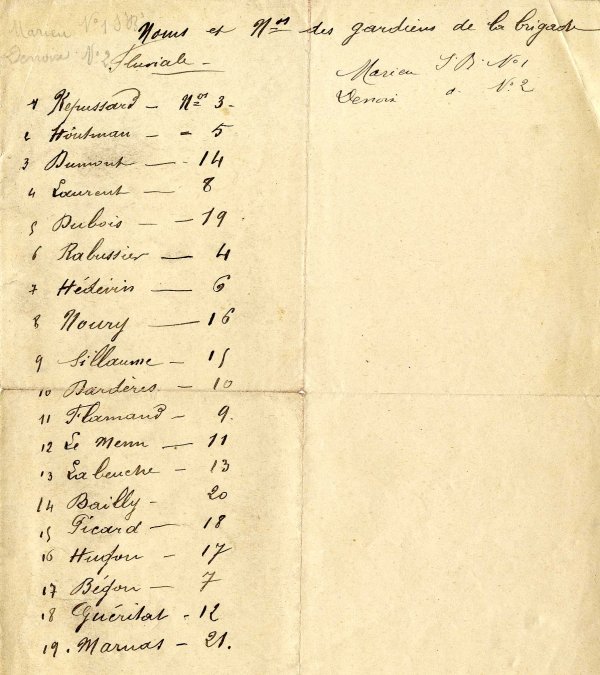 Marien N°1 S.B.
Denoix N°2
Noms et Nos des gardiens de la brigade
Fluviale
Marien S.B. N°1
Denoix d. N°2
1 Repussard - Nos 3.
2 Houtman - - 5
3 Dumont - - 14
4 Laurent - 8
5 Dubois - - 19
6 Rabussier - 4
7 Hédévin - 6
8 Noury - 16
9 Gillaume - 15
10 Bardères - 10
11 Flamand - 9.
12 Le Menn - 11
13 Labeuche - 13
14 Bailly - 20
15 Picard - 18
16 Hugon - 17
17 Bégon - 7
18 Guéritat - 12
19. Marnas - 21.